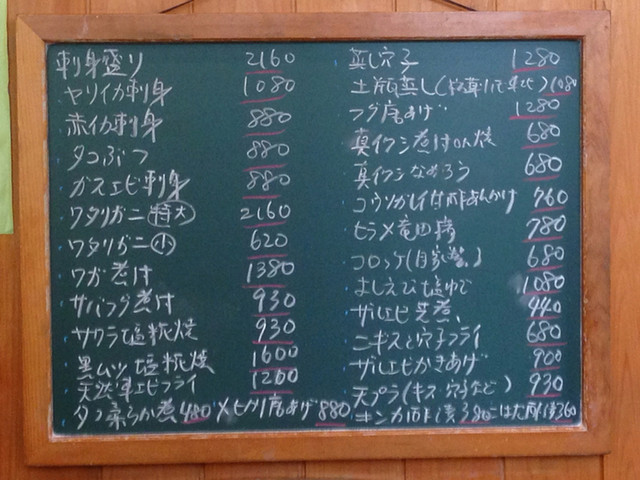 刺身盛り 2160
ヤリイカ刺身 1080
赤イカ刺身 880
タコぶつ 880
ガスエビ刺身 880
ワタリガニ 特大 2160
ワタリガニ 小 620
ワガ煮付 1380
サバフグ煮付 930
サクラ塩糀焼 930
黒ムツ塩糀焼 1600
天然車エビフライ 1200
タコ柔らか煮 480 メヒカリ唐あげ 880
蒸し穴子 1280
土瓶蒸し( ) 1080
フグ唐あげ 1280
真イワシ煮付 焼 680
真イワシなめろう 680
コウソガレイ甘酢あんかけ 760
ヒラメ竜田揚 780
コロッケ(自家製) 680
よしえび塩ゆで 1080
ザルエビ芝煮 440
ニギスと穴子フライ 680
ザルエビかきあげ 900
天プラ(キス 穴子など) 930
キンカ 漬 380 360